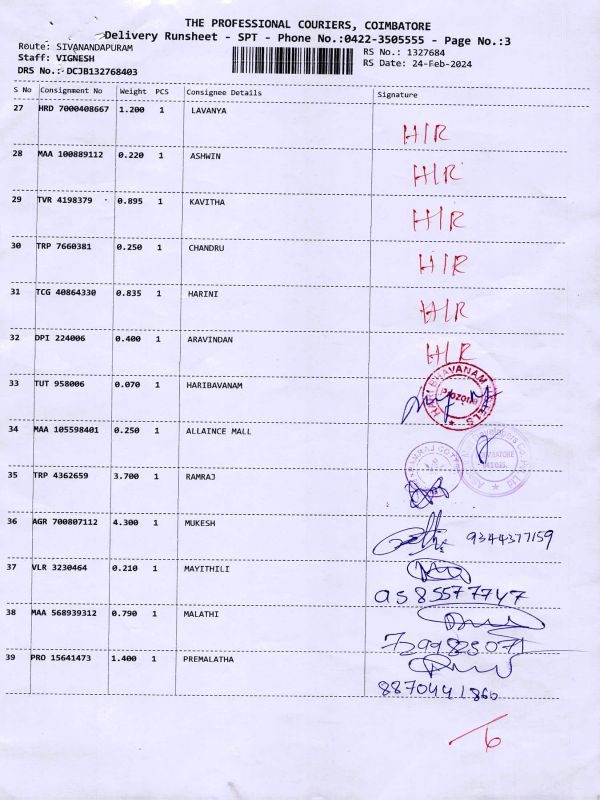 THE PROFESSIONAL COURIERS, COIMBATORE
Delivery Runsheet - SPT - Phone No.:0422-3505555 - Page No.:3
Route: SIVANANDAPURAM RS No.: 1327684
Staff: VIGNESH RS Date: 24-Feb-2024
DRS No.: DCJB132768403
S No Consignment No Weight PCS Consignee Details Signature
27 HRD 7000408667 1.200 1 LAVANYA H/R
28 MAA 100889112 0.220 1 ASHWIN H/R
29 TVR 4198379 0.895 1 KAVITHA H/R
30 TRP 7660381 0.250 1 CHANDRU H/R
31 TCG 40864330 0.835 1 HARINI H/R
32 DPI 224006 0.400 1 ARAVINDAN H/R
33 TUT 958006 0.070 1 HARIBAVANAM HARI BHAVANAM HOTELS Prozone
34 MAA 105598401 0.250 1 ALLAINCE MALL
35 TRP 4362659 3.700 1 RAMRAJ
36 AGR 700807112 4.300 1 MUKESH 9344377159
37 VLR 3230464 0.210 1 MAYITHILI
9585577747
38 MAA 568939312 0.790 1 MALATHI
39 PRO 15641473 1.400 1 PREMALATHA
8870441860
6